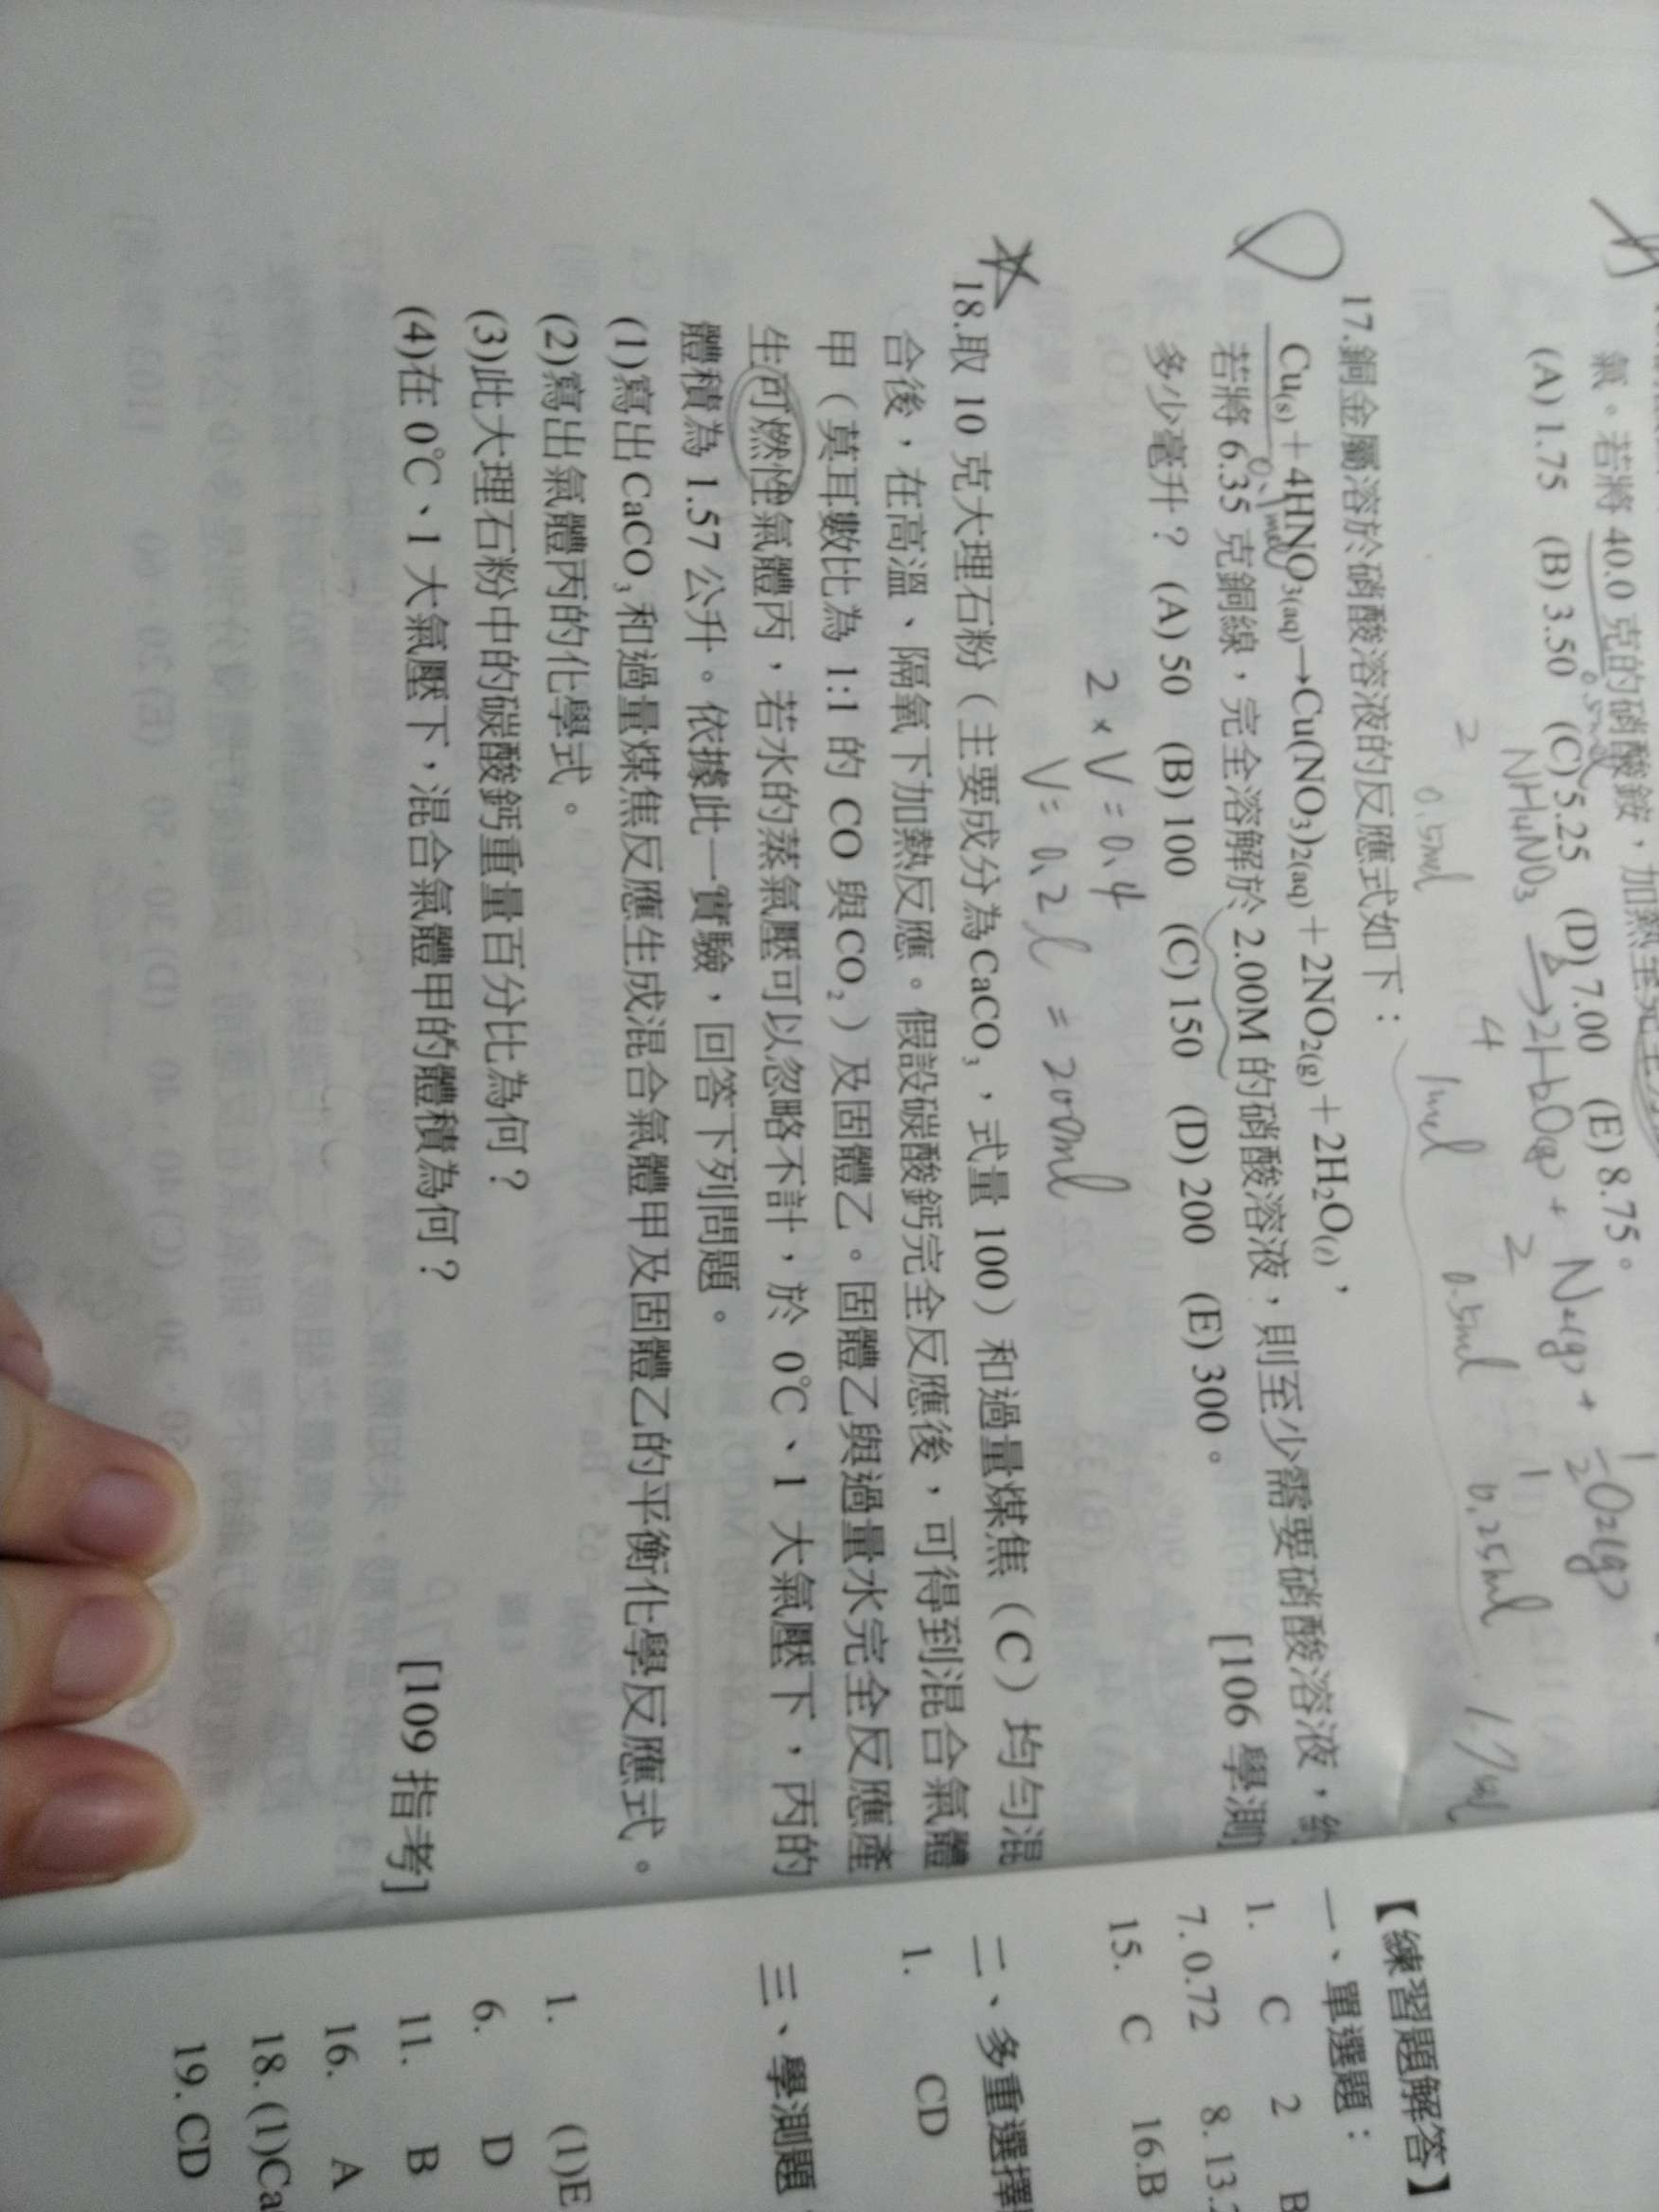 氣。若將 40.0 克的硝酸銨，加熱至完全
0.5mol
(A) 1.75 (B) 3.50 (C) 5.25 (D) 7.00 (E) 8.75。
NH4NO3 →Δ 2H2O(g) + N2(g) + 1/2 O2(g)
2 4 2 1
0.5mol 1mol 0.5mol 0.25mol
17.銅金屬溶於硝酸溶液的反應式如下：
Cu(s)＋4HNO3(aq)→Cu(NO3)2(aq)＋2NO2(g)＋2H2O(ℓ)，
0.1mol
若將 6.35 克銅線，完全溶解於 2.00M 的硝酸溶液，則至少需要硝酸溶液，約
多少毫升？ (A) 50 (B) 100 (C) 150 (D) 200 (E) 300。
[106 學測]
2 × V = 0.4
V = 0.2 l = 200ml
18.取 10 克大理石粉（主要成分為 CaCO3，式量 100）和過量煤焦（C）均勻混
合後，在高溫、隔氧下加熱反應。假設碳酸鈣完全反應後，可得到混合氣體
甲（莫耳數比為 1:1 的 CO 與 CO2）及固體乙。固體乙與過量水完全反應產
生可燃性氣體丙，若水的蒸氣壓可以忽略不計，於 0℃、1 大氣壓下，丙的
體積為 1.57 公升。依據此一實驗，回答下列問題。
(1)寫出 CaCO3 和過量煤焦反應生成混合氣體甲及固體乙的平衡化學反應式。
(2)寫出氣體丙的化學式。
(3)此大理石粉中的碳酸鈣重量百分比為何？
(4)在 0℃、1 大氣壓下，混合氣體甲的體積為何？
[109 指考]
【練習題解答】
一、單選題：
1. C 2 B
7. 0.72 8. 13.2
15. C 16.B
二、多重選擇
1. CD
三、學測題
1. (1)E
6. D
11. B
16. A
18. (1)Ca
19. CD